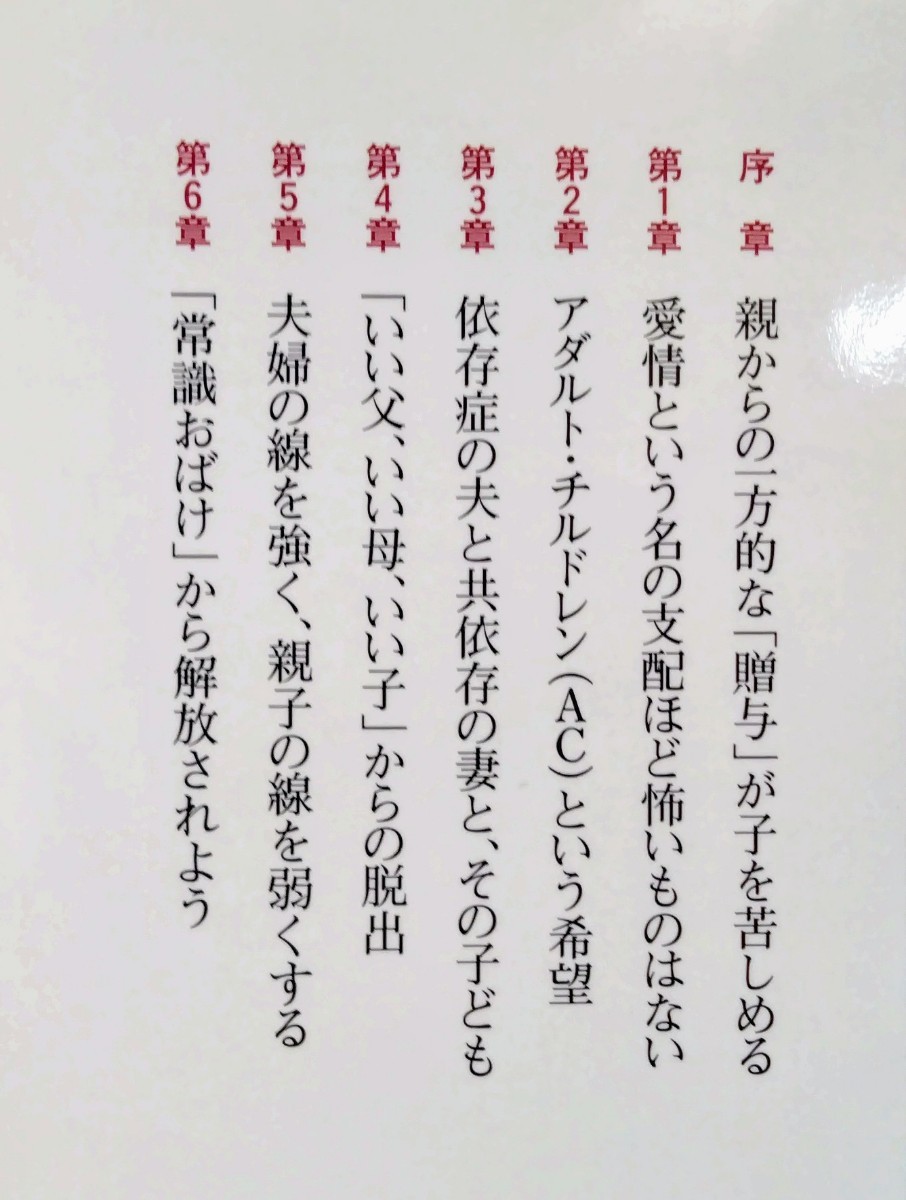 序　章　親からの一方的な「贈与」が子を苦しめる
第1章　愛情という名の支配ほど怖いものはない
第2章　アダルト・チルドレン（AC）という希望
第3章　依存症の夫と共依存の妻と、その子ども
第4章　「いい父、いい母、いい子」からの脱出
第5章　夫婦の線を強く、親子の線を弱くする
第6章　「常識おばけ」から解放されよう